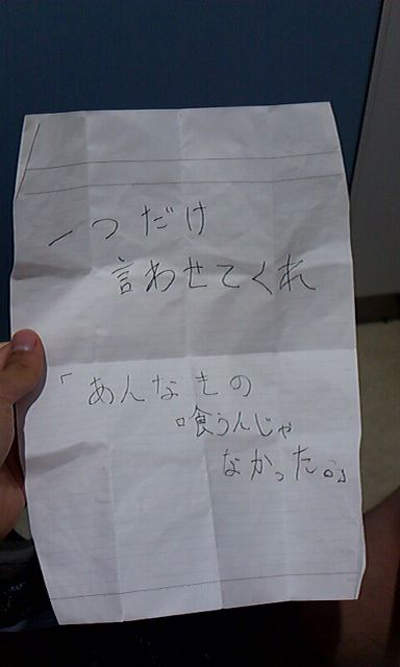 一つだけ
言わせてくれ
「あんなもの
喰うんじゃ
なかった。」